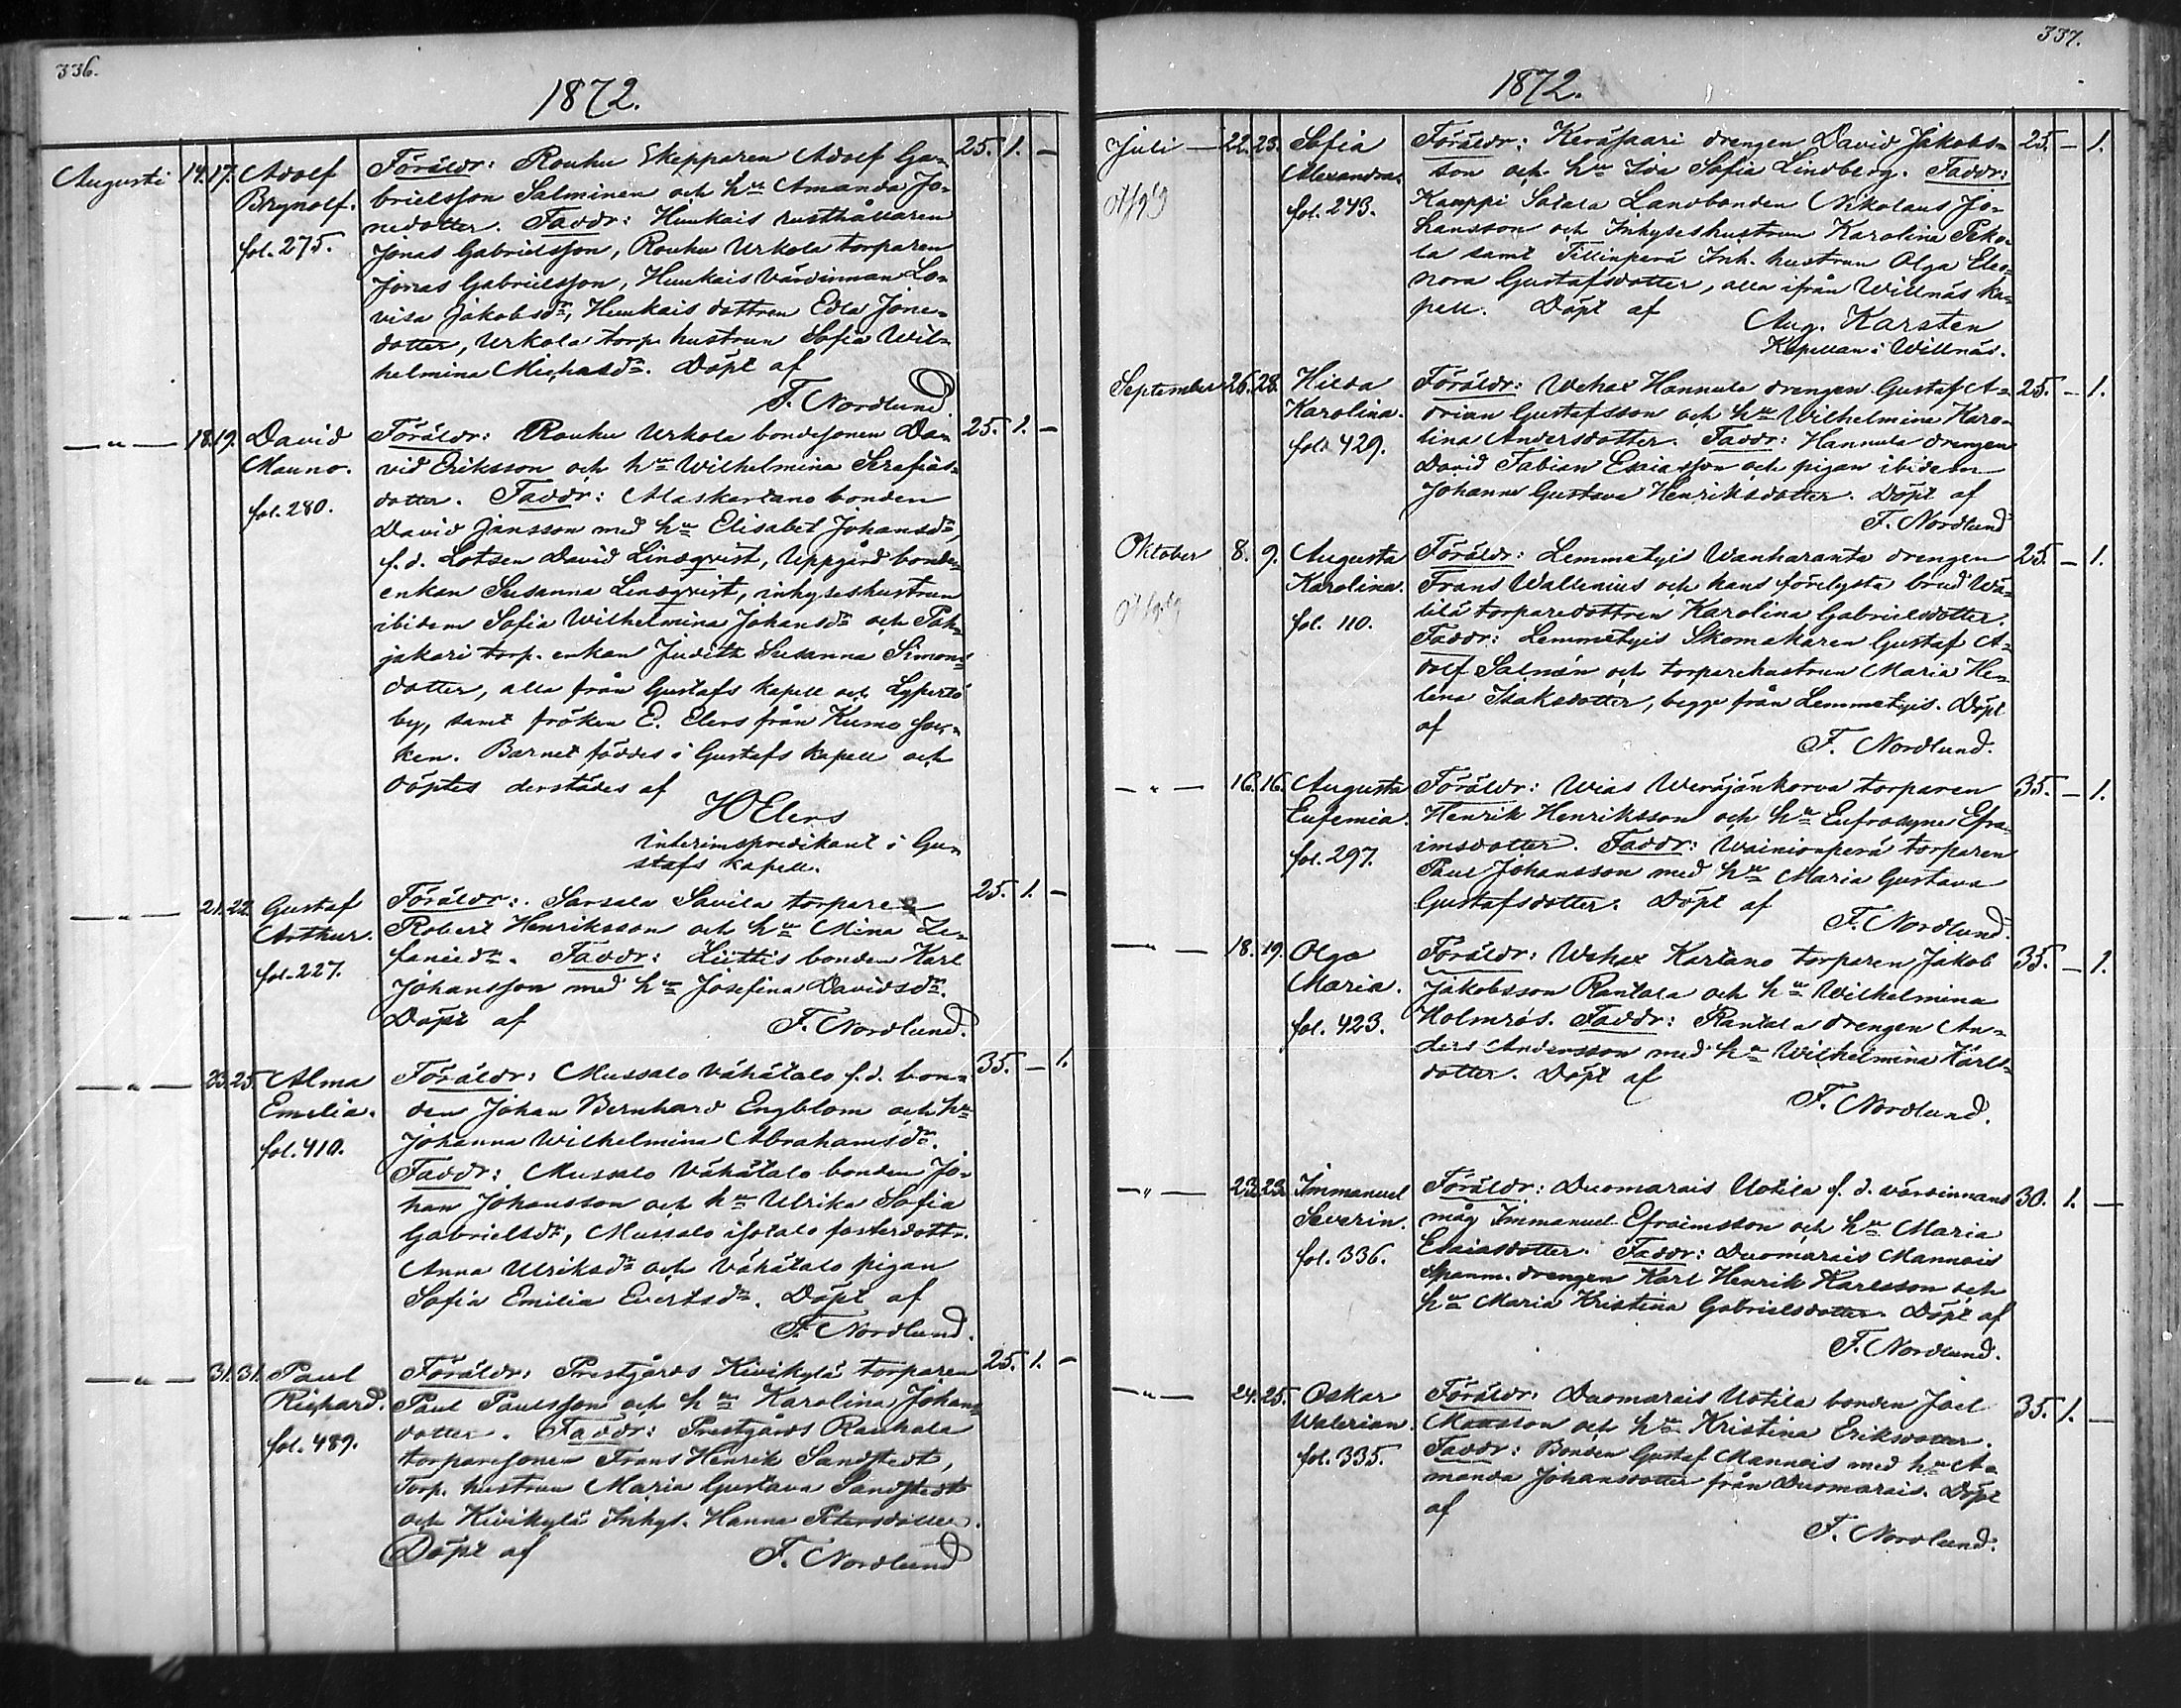 336.
1872.
Augusti 14. 17. Adolf Föräldr: Rouhu Skepparen Adolf Ga- 25. 1. –
Brynolf. brielsson Salminen och hu Amanda Jo-
fol. 275. nedotter. Faddr: Hunkais rusthållaren
Jonas Gabrielsson, Rouhu Urkola torparen
Jonas Gabrielsson, Hunkais värdinnan Lo-
visa Jakobsdr, Hunkais dottren Edla Jone-
dotter, Urkola torp. hustrun Sofia Wil-
helmina Michelsdr. Döpt af
F. Nordlund.
— " — 18. 19. David Föräldr: Rouhu Urkola bondesonen Da- 25. 1. –
Mauno. vid Eriksson och hu Wilhelmina Serafias-
fol. 280. dotter. Faddr: Alaskartano bonden
David Jansson med hu Elisabet Johansdr,
f.d. Lotsen David Lindqvist, Uppgård bonde-
enkan Susanna Lindqvist, inhyseshustrun
ibidem Sofia Wilhelmina Johansdr och Päh-
jakari torp. enkan Judith Susanna Simons-
dotter, alla från Gustafs kapell och Lypertö
by, samt fröken E. Elers från Kumo Soc-
ken. Barnet föddes i Gustafs kapell och
döptes derstädes af
H Elers
interimspredikant i Gu-
stafs kapell.
— " — 21. 22. Gustaf Föräldr: Sarsala Savila torparen 25. 1. –
Arthur. Robert Henriksson och hu Mina Ze-
fol. 227. faniedr. Faddr: Liittis bonden Karl
Johansson med hu Josefina Davidsdr.
Döpt af F. Nordlund.
— " — 23. 25. Alma Föräldr: Mussalo Vähätalo f.d. bon- 35. – 1.
Emelia. den Johan Bernhard Engblom och hu
fol. 410. Johanna Wilhelmina Abrahamsdr.
Faddr: Mussalo Vähätalo bonden Jo-
han Johansson och hu Ulrika Sofia
Gabrielsdr, Mussalo isotalo fosterdottr.
Anna Ulriksdr och Vähätalo pigan
Sofia Emilia Evertsdr. Döpt af
F. Nordlund.
— " — 31. 31. Paul Föräldr: Prestgårds Kivikylä torparen 25. 1. –
Richard. Paul Paulsson och hu Karolina Johans-
fol. 489. dotter. Faddr: Prestgårds Rauhala
torparesonen Frans Henrik Sandstedt,
Torp. hustrun Maria Gustava Sandstedt
och Kivikylä Inhys. Hanna Petersdotter.
Döpt af F. Nordlund
337.
1872.
Juli — 22. 23. Sofia Föräldr: Keräsaari drengen David Jakobs- 25. – 1.
Alexandra. son och hu Ida Sofia Lindberg. Faddr:
fol. 243. Kauppi Satala Landbonden Nikolaus Jo-
hansson och Inhyseshustrun Karolina Peko-
la samt Tillinperä Inh. hustrun Olga Eleo-
nora Gustafsdotter, alla ifrån Willnäs ka-
pell. Döpt af Aug. Karsten
Kapellan i Willnäs.
September 26. 28. Hilda Föräldr: Wehax Hannula drengen Gustaf A- 25. – 1.
Karolina. drian Gustafsson och hu Wilhelmina Karo-
fol. 429. lina Andersdotter. Faddr: Hannula drengen
David Fabian Esaiasson och pigan ibidem
Johanna Gustava Henriksdotter. Döpt af
F. Nordlund
Oktober 8. 9. Augusta Föräldr: Lemmetyi Wanharanta drengen 25. – 1.
Karolina. Frans Wallenius och hans förelysta brud Wä-
fol. 110. lilä torparedottren Karolina Gabrielsdotter.
Faddr: Lemmetyis Skomakaren Gustaf A-
dolf Salmén och torparehustrun Maria He-
lena Isaksdotter, begge från Lemmetyis. Döpt
af
F. Nordlund.
— " — 16. 16. Augusta Föräldr: Wias Weräjänkorva torparen 35. – 1.
Eufemia. Henrik Henriksson och hu Eufrosyne Efra-
fol. 297. imsdotter. Faddr: Wainionperä torparen
Paul Johansson med hu Maria Gustava
Gustafsdotter. Döpt af
F. Nordlund.
— " — 18. 19. Olga Föräldr: Wehax Kartano torparen Jakob 35. – 1.
Maria. Jakobsson Rantala och hu Wilhelmina
fol. 423. Holmrós. Faddr: Rantala drengen An-
ders Andersson med hu Wilhelmina Karls-
dotter. Döpt af
F. Nordlund.
— " — 23. 23. Immanuel Föräldr: Duomarais Uotila f.d. värdinnans 30. 1. —
Severin. måg Immanuel Efraimsson och hu Maria
fol. 336. Esaiasdotter. Faddr: Duomarais Mannois
Spanm. drengen Karl Henrik Karlsson och
hu Maria Kristina Gabrielsdotter. Döpt af
F. Nordlund.
— " — 24. 25. Oskar Föräldr: Duomarais Uotila bonden Joel 35. 1. —
Walerian. Mattsson och hu Kristina Eriksdotter.
fol. 335. Faddr: Bonden Gustaf Mannois med hu A-
manda Johansdotter från Duomarais. Döpt
af
F. Nordlund.